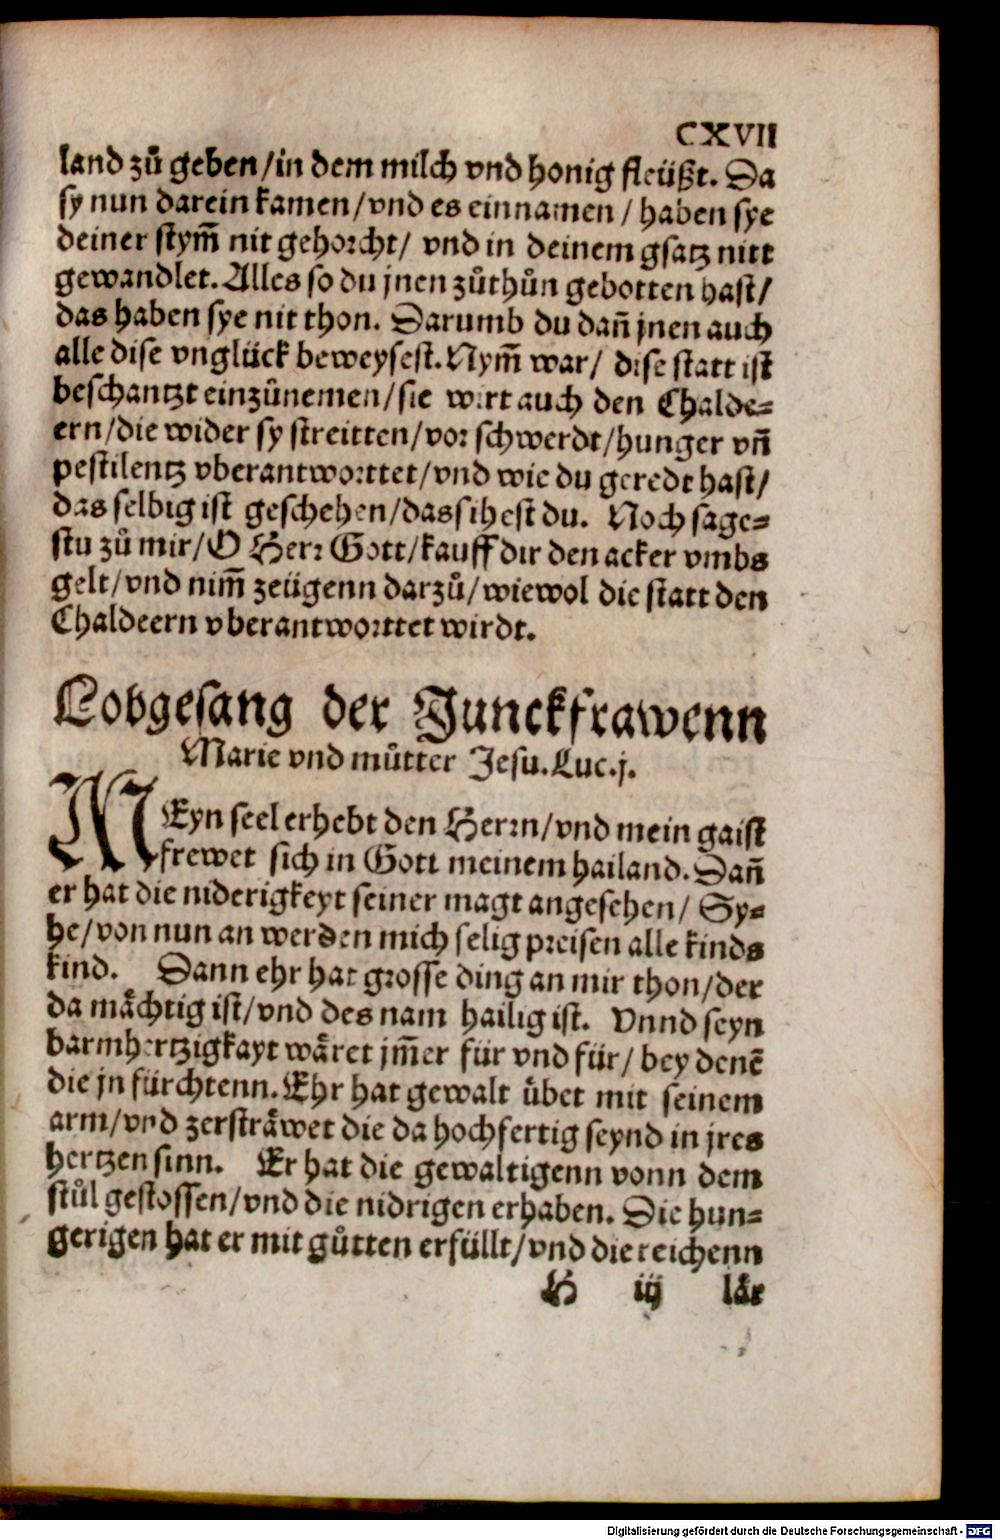 CXVII
land zů geben/in dem milch vnd honig fleüßt. Da
sy nun darein kamen/vnd es einnamen / haben sye
deiner stym̄ nit gehorcht/ vnd in deinem gsatz nitt
gewandlet. Alles so du jnen zůthůn gebotten hast/
das haben sye nit thon. Darumb du dañ jnen auch
alle dise vnglück beweysest. Nym̄ war/ dise statt ist
beschantzt einzůnemen/sie wirt auch den Chalde=
ern/die wider sy streitten/vor schwerdt/hunger vñ
pestilentz vberantworttet/vnd wie du geredt hast/
das selbig ist geschehen/das sihest du. Noch sage=
stu zů mir/O Herr Gott/kauff dir den acker vmbs
gelt/vnd nim̄ zeügenn darzů/wiewol die statt den
Chaldeern vberantworttet wirdt.
Lobgesang der Junckfrawenn
Marie vnd můtter Jesu. Luc.j.
MEyn seel erhebt den Herrn/vnd mein gaist
frewet sich in Gott meinem hailand. Dañ
er hat die niderigkeyt seiner magt angesehen/ Sy=
he/von nun an werden mich selig preisen alle kinds
kind. Dann ehr hat grosse ding an mir thon/der
da maͤchtig ist/vnd des nam hailig ist. Vnnd seyn
barmhertzigkayt waͤret jm̄er für vnd für/ bey denē
die jn fürchtenn. Ehr hat gewalt uͤbet mit seinem
arm/vnd zerstraͤwet die da hochfertig seynd in jres
hertzen sinn. Er hat die gewaltigenn vonn dem
stůl gestossen/vnd die nidrigen erhaben. Die hun=
gerigen hat er mit guͤtten erfüllt/vnd die reichenn
H iij laͤr
Digitalisierung gefördert durch die Deutsche Forschungsgemeinschaft - DFG